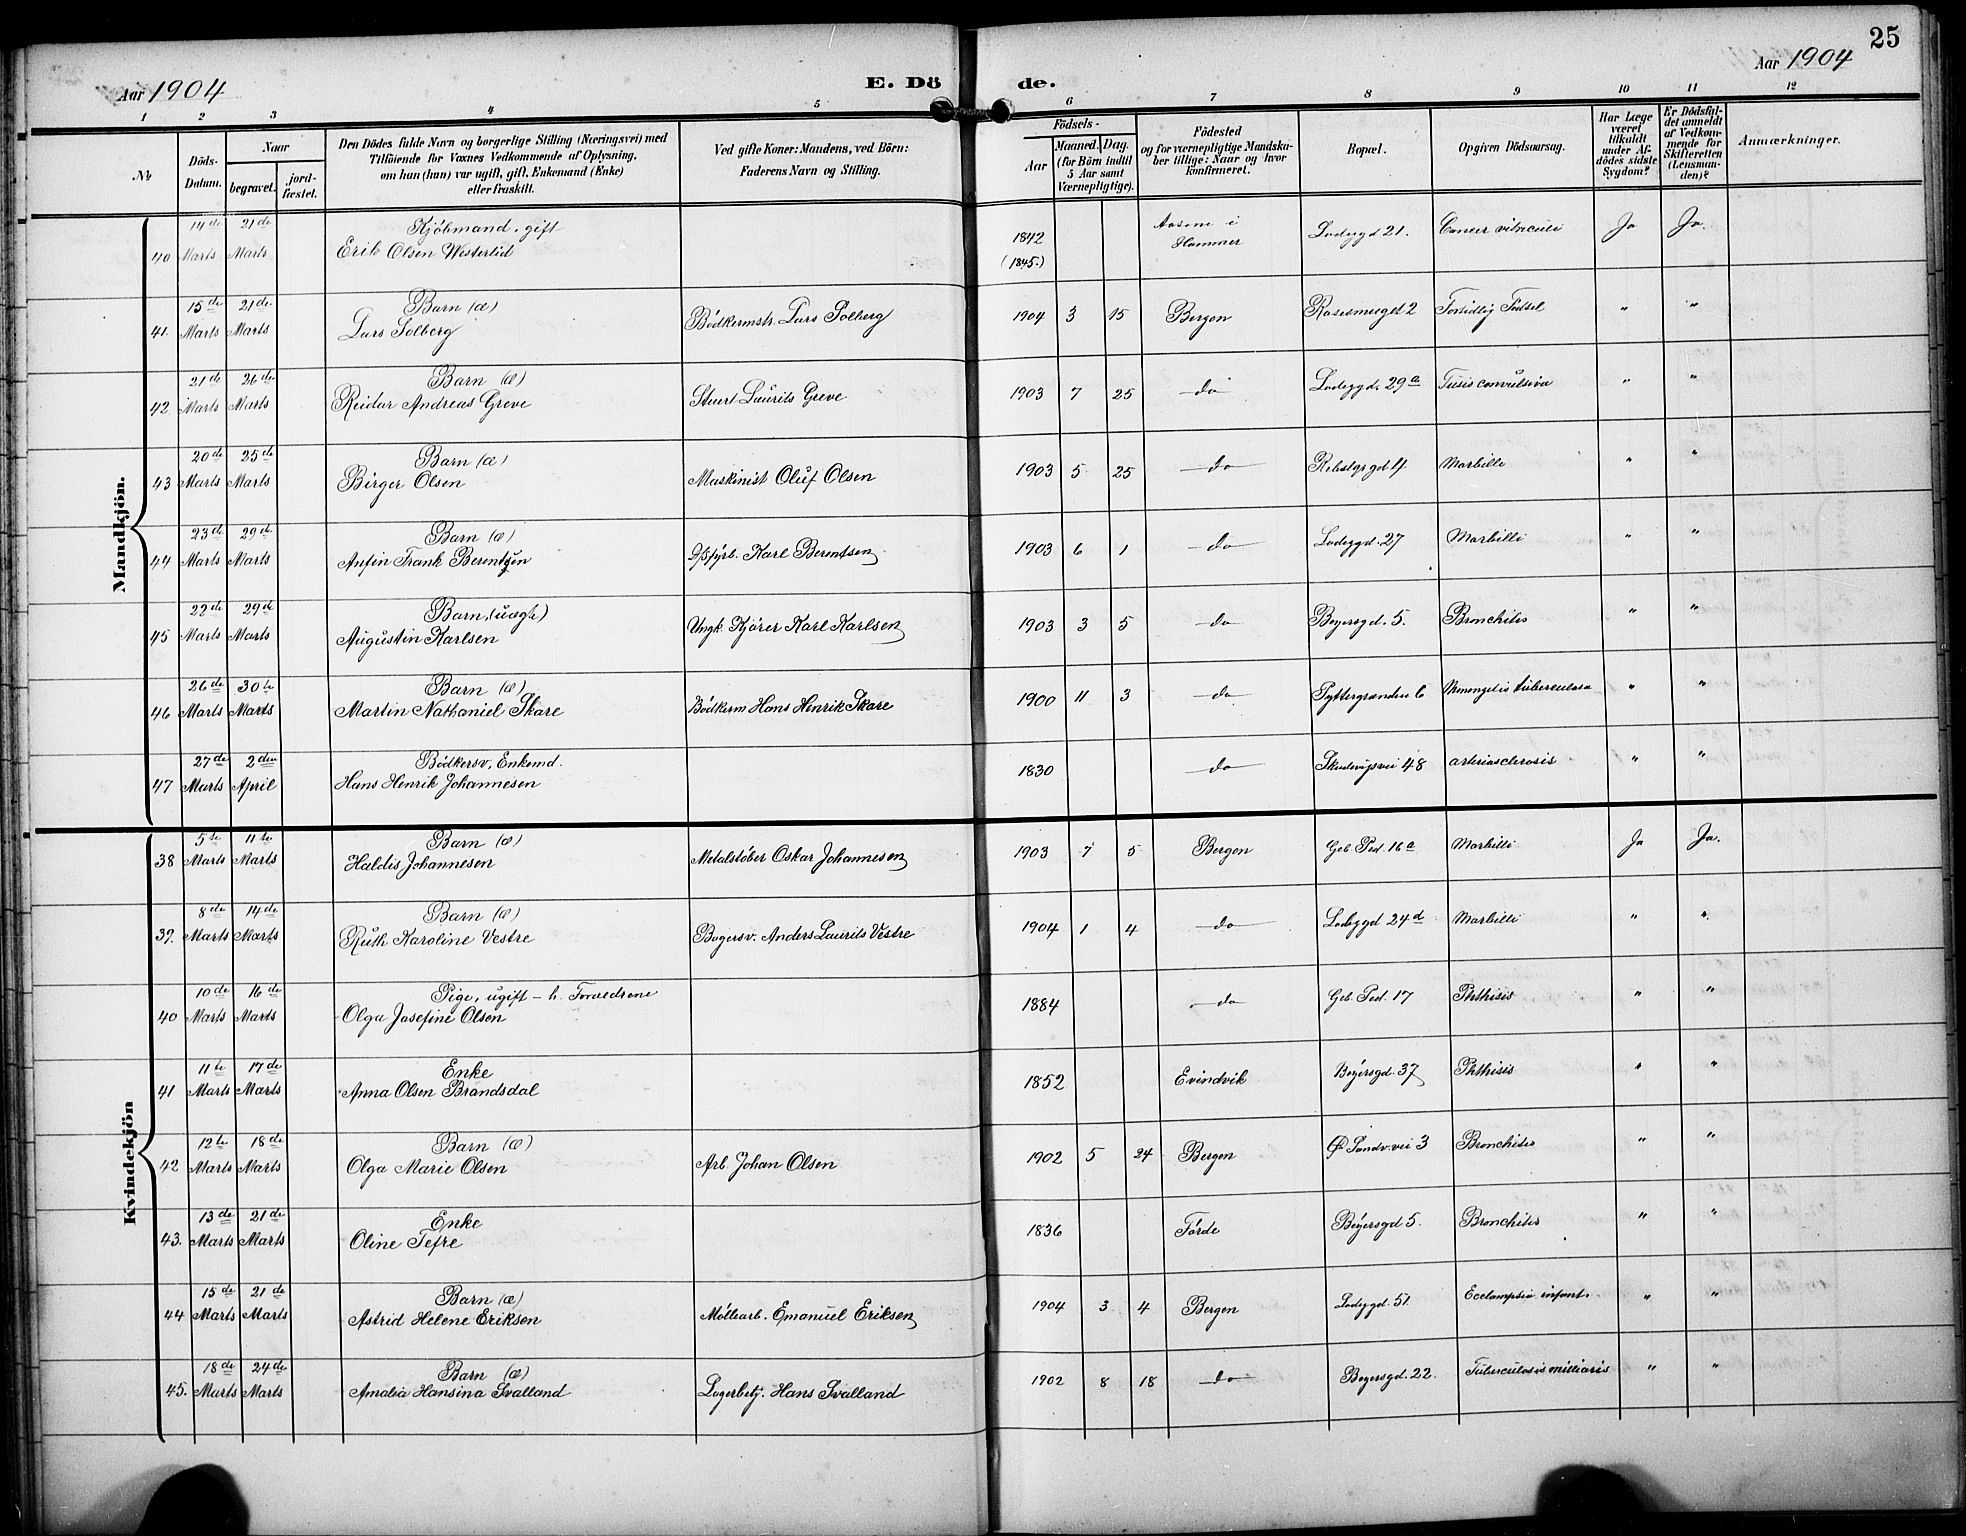 25
Aar 1904
E. Döde.
Aar 1904
1 2 3 4 5 6 7 8 9 10 11 12
No
Döds-Datum.
Naar
begravet.
jordfæstet.
Den Dödes fulde Navn og borgerlige Stilling (Næringsvei) med Tilföiende for Voxnes Vedkommende af Oplysning, om han (hun) var ugift, gift, Enkemand (Enke) eller fraskilt.
Ved gifte Koner: Mandens, ved Börn: Faderens Navn og Stilling.
Födsels-
Aar
Maaned. Dag. (for Börn indtil 5 Aar samt Værnepligtige).
Födested og for værnepligtige Mandskaber tillige: Naar og hvor konfirmeret.
Bopæl.
Opgiven Dödsaarsag.
Har Læge været tilkaldt under Afdödes sidste Sygdom?
Er Dödsfaldet anmeldt af Vedkommende for Skifteretten (Lensmanden)?
Anmærkninger.
Mandkjön.
40 14de Marts 21de Marts Kjöbmand, gift Erik Olsen Westerlid 1842 (1845.) Aasene i Hammer Ladegd 21. Cancer vitriculi Ja Ja.
41. 15de Marts 21de Marts Barn (æ) Lars Solberg Bödkermstr. Lars Solberg 1904 3 15 Bergen Rosesmuget 2 Forsidlig Födsel " "
42. 21de Marts 26de Marts Barn (æ) Reidar Andreas Greve Stuert Laurits Greve 1903 7 25 do Ladegd. 29a Tusis convulsiva " "
43 20de Marts 25de Marts Barn (æ) Birger Olsen Maskinist Oluf Olsen 1903 5 25 do Rebslgr gd 4 Morbilli " "
44 23de Marts 29de Marts Barn (æ) Anfin Frank Berentsen Karl Berentsen 1903 6 1 do Ladegd. 27 Morbilli " "
45 22de Marts 29de Marts Barn, (uægte) Augustin Karlsen Ungk. Kjører Karl Karlsen 1903 3 5 do Bøyersgd. 5. Bronchitis " "
46 26de Marts 30te Marts Barn (æ) Martin Nathaniel Skare Bödkerm Hans Henrik Skare 1900 11 3 do Pyttergrænden 6 Meningitis tuberculosa " "
47 27de Marts 2den April Bödkersv, Enkemd. Hans Henrik Johannesen 1830 do Skuteviqsvei 48 arteriosclerosis " "
Kvindekjön
38 5te Marts 11te Marts Barn (æ) Haldis Johannesen Metalstøber Oskar Johannesen 1903 7 5 Bergen Geb Ped. 16a Morbilli Ja Ja.
39. 8de Marts 14de Marts Barn (æ) Ruth Karoline Vestre Bagersv. Anders Laurits Vestre 1904 1 4 do Ladegd 24d Morbilli " "
40 10de Marts 16de Marts Pige, ugift - h. Forældrene Olga Josefine Olsen 1884 do Geb Ped. 17 Phthisis " "
41 11te Marts 17de Marts Enke Anna Olsen Brandsdal 1852 Evindvik Bøyersgd. 37 Phthisis " "
42 12te Marts 18de Marts Barn (æ) Olga Marie Olsen Arb. Johan Olsen 1902 5 24 Bergen Ø Sandv. vei 3 Bronchitis " "
43. 13de Marts 21de Marts Enke Oline Tefre 1836 Førde Bøyersgd 5. Bronchitis " "
44 15de Marts 21de Marts Barn (æ) Astrid Helene Eriksen Møllearb. Emanuel Eriksen 1904 3 4 Bergen Ladegd. 51. Eclampsia infant. " "
45. 18de Marts 24de Marts Barn (æ) Amalia Hansina Svalland Lagerbetj. Hans Svalland 1902 8 18 do Bøyersgd. 22. Tuberculosis miliaris " "